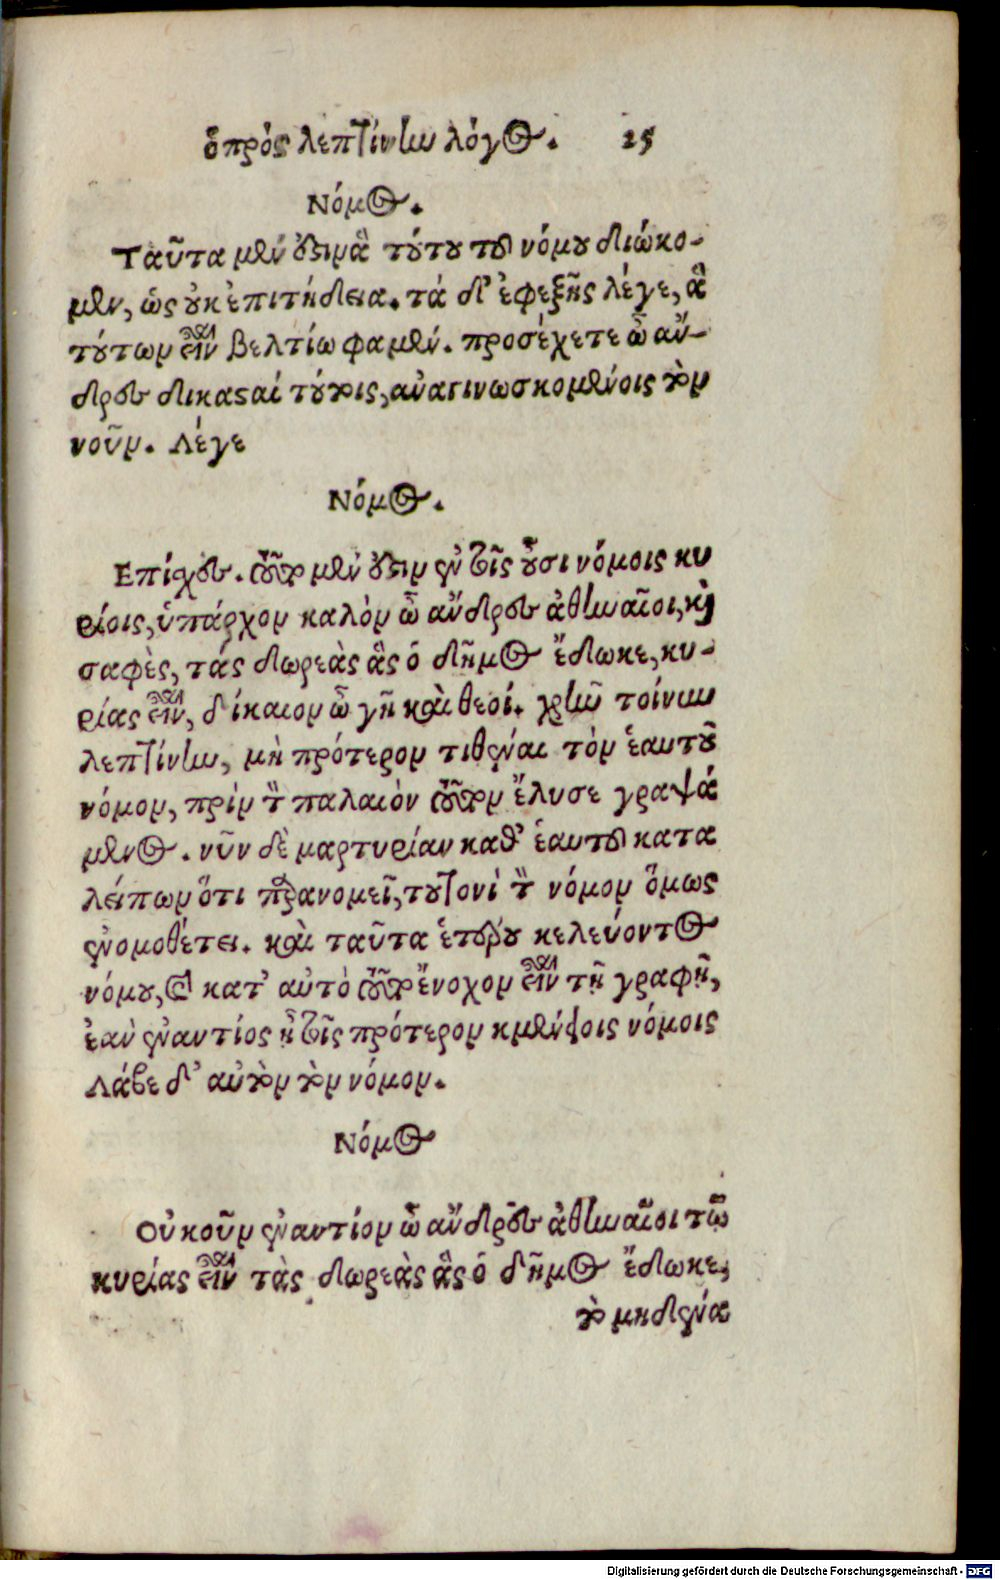 ὁ πρὸς λεπτίνην λόγος. 25
Νόμος.
Ταῦτα μὲν ὅστιν ἃ τούτου τοῦ νόμου διώκο-
μεν, ὡς οὐκ ἐπιτήδεια. τὰ δ' ἐφεξῆς λέγε, ἃ
τούτων εἶναι βελτίω φαμέν. προσέχετε ὦ ἄν-
δρες δικασταὶ τούτοις, ἀναγινωσκομένοις τὸν
νοῦν. Λέγε
Νόμος.
Επίσχες. τοῦτο μὲν ὅστιν ἐν τοῖς οὖσι νόμοις κυ
ρίοις, ὑπάρχον καλὸν ὦ ἄνδρες ἀθηναῖοι, καὶ
σαφὲς, τάς δωρεὰς ἃς ὁ δῆμος ἔδωκε, κυ-
ρίας εἶναι, δίκαιον ὦ γῆ καὶ θεοί. χρῆν τοίνυν
λεπτίνην, μὴ πρότερον τιθέναι τὸν ἑαυτοῦ
νόμον, πρὶν τὸν παλαιὸν τοῦτον ἔλυσε γραψά
μενος. νῦν δὲ μαρτυρίαν καθ' ἑαυτοῦ κατα
λείπων ὅτι παρανομεῖ, τουτονὶ τὸν νόμον ὅμως
ἐνομοθέτει. καὶ ταῦτα ἑτέρου κελεύοντος
νόμου, καὶ κατ' αὐτὸ τοῦτο ἔνοχον εἶναι τῇ γραφῇ,
ἐὰν ἐναντίος ᾖ τοῖς πρότερον κειμένοις νόμοις
Λάβε δ' αὐτὸν τὸν νόμον.
Νόμος
Οὐκοῦν ἐναντίον ὦ ἄνδρες ἀθηναῖοι τῷ
κυρίας εἶναι τὰς δωρεὰς ἃς ὁ δῆμος ἔδωκε,
τὸ μηδένα
Digitalisierung gefördert durch die Deutsche Forschungsgemeinschaft - DFG